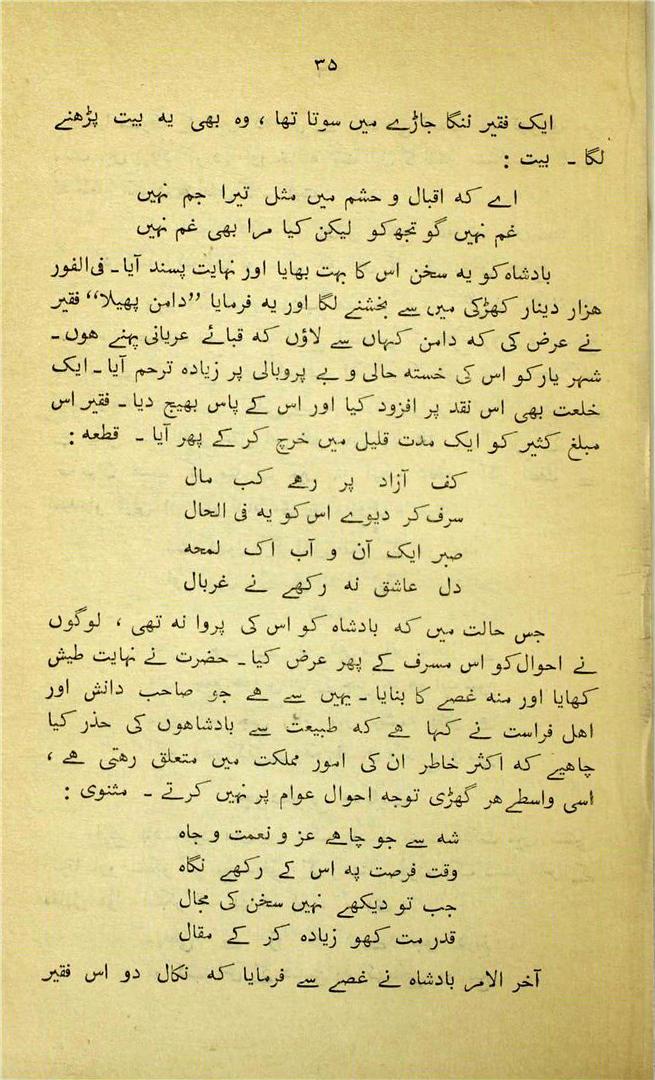 ۳۵
ایک فقیر ننگا جاڑے میں سوتا تھا ، وہ بھی یہ بیت پڑھنے
لگا ۔ بیت :
اے کہ اقبال و حشم میں مثل تیرا جم نہیں
غم نہیں گو تجھ کو لیکن کیا مرا بھی غم نہیں
بادشاہ کو یہ سخن اس کا بہت بھایا اور نہایت پسند آیا ۔ فی الفور
ھزار دینار کھڑکی میں سے بخشنے لگا اور یہ فرمایا ”دامن پھیلا“ فقیر
نے عرض کی کہ دامن کہاں سے لاؤں کہ قبائے عریانی پہنے ھوں ۔
شہر یار کو اس کی خستہ حالی و بے پروبالی پر زیادہ ترحم آیا ۔ ایک
خلعت بھی اس نقد پر افزود کیا اور اس کے پاس بھیج دیا ۔ فقیر اس
مبلغ کثیر کو ایک مدت قلیل میں خرچ کر کے پھر آیا ۔ قطعہ :
کف آزاد پر رھے کب مال
سرف کر دیوے اس کو یہ فی الحال
صبر ایک آن و آب اک لمحہ
دل عاشق نہ رکھے نے غربال
جس حالت میں کہ بادشاہ کو اس کی پروا نہ تھی ، لوگوں
نے احوال کو اس مسرف کے پھر عرض کیا ۔ حضرت نے نہایت طیش
کھایا اور منہ غصے کا بنایا ۔ یہیں سے ھے جو صاحب دانش اور
اھل فراست نے کہا ھے کہ طبیعت سے بادشاھوں کی حذر کیا
چاھیے کہ اکثر خاطر ان کی امور مملکت میں متعلق رھتی ھے ،
اسی واسطے ھر گھڑی توجہ احوال عوام پر نہیں کرتے ۔ مثنوی :
شہ سے جو چاھے عز و نعمت و جاہ
وقت فرصت پہ اس کے رکھے نگاہ
جب تو دیکھے نہیں سخن کی مجال
قدر مت کھو زیادہ کر کے مقال
آخر الامر بادشاہ نے غصے سے فرمایا کہ نکال دو اس فقیر